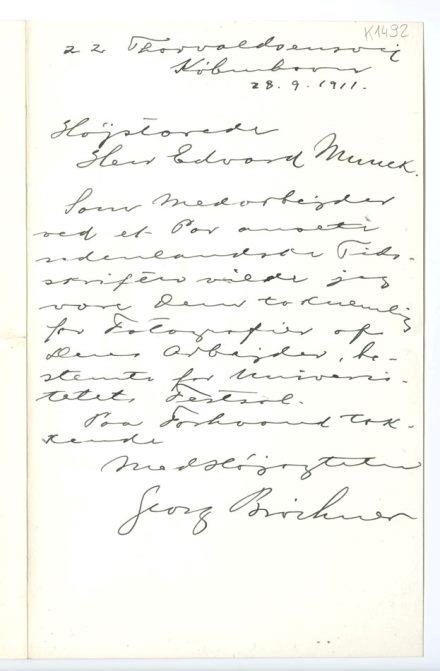 K1492
22 Thorvaldsensvej
København
28.9.1911.
Højstærede
Herr Edvard Munch.
Som Medarbejder
ved et Par ansete
udenlandske Tids-
skrifter vilde jeg
være Dem taknemlig
for Fotografier af
Deres Arbejder, be-
stemte for Universi-
tetets Festsal.
Paa Forhaand tak-
kende
Med Højagtelse
Georg Brochner